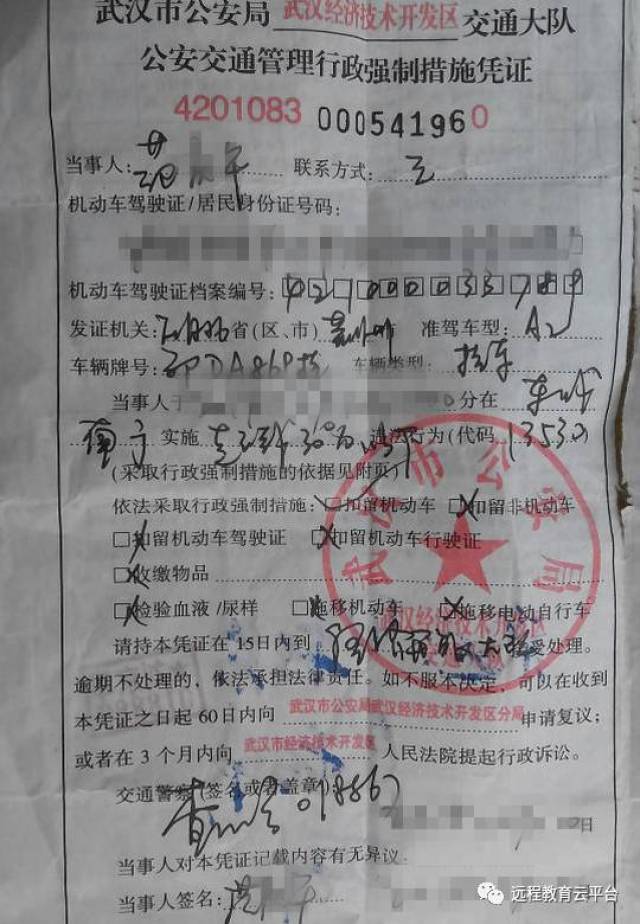 武汉市公安局 武汉经济技术开发区 交通大队
公安交通管理行政强制措施凭证
4201083 000541960
当事人: 范 平 联系方式: 无
机动车驾驶证/居民身份证号码:
机动车驾驶证档案编号:
发证机关: 省(区、市) 准驾车型: A2
车辆牌号: 车辆类型: 挂车
当事人于 分在
实施 违法行为(代码 13530)
(采取行政强制措施的依据见附页)
依法采取行政强制措施: □扣留机动车 □扣留非机动车
□扣留机动车驾驶证 □扣留机动车行驶证
□收缴物品
□检验血液/尿样 □拖移机动车 □拖移电动自行车
请持本凭证在15日内到 接受处理。
逾期不处理的,依法承担法律责任。如不服本决定,可以在收到
本凭证之日起60日内向 武汉市公安局武汉经济技术开发区分局 申请复议;
或者在3个月内向 武汉市经济技术开发区 人民法院提起行政诉讼。
交通警察(签名或者盖章) 018867
日
当事人对本凭证记载内容有无异议
当事人签名: 范 平
武汉市公安局
武汉经济技术开发区
远程教育云平台